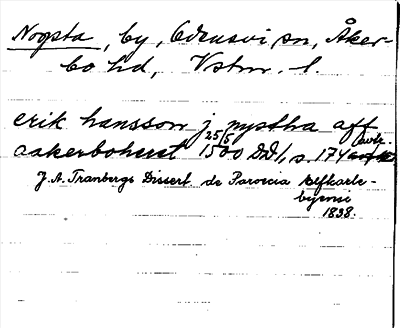 Nogsta, by, Odensvi sn, Åker-
bo hd, Vstm. l.
erik hansson j nystha aff
aakerbohæret 25/5 1500 DD1, s. 174 avtr.
J. A. Tranbergs Dissert. de Paroecia Elfkarle-
byensi
1838.